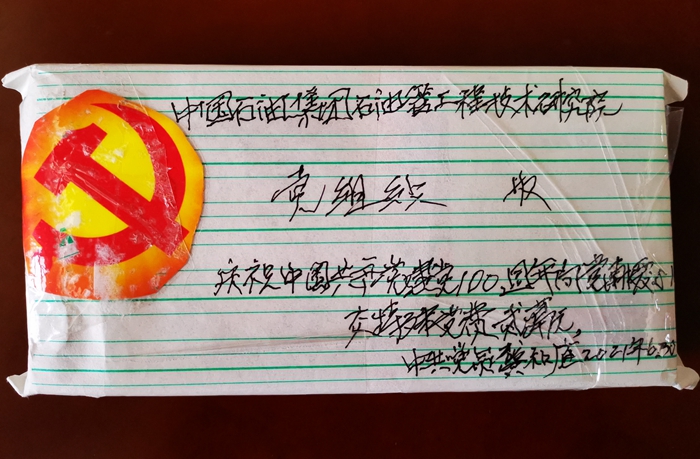 中国石油集团石油管工程技术研究院
党组织 收
庆祝中国共产党建党100周年向党献
交特殊党费贰万元,
中共党员 和 2021年6.30